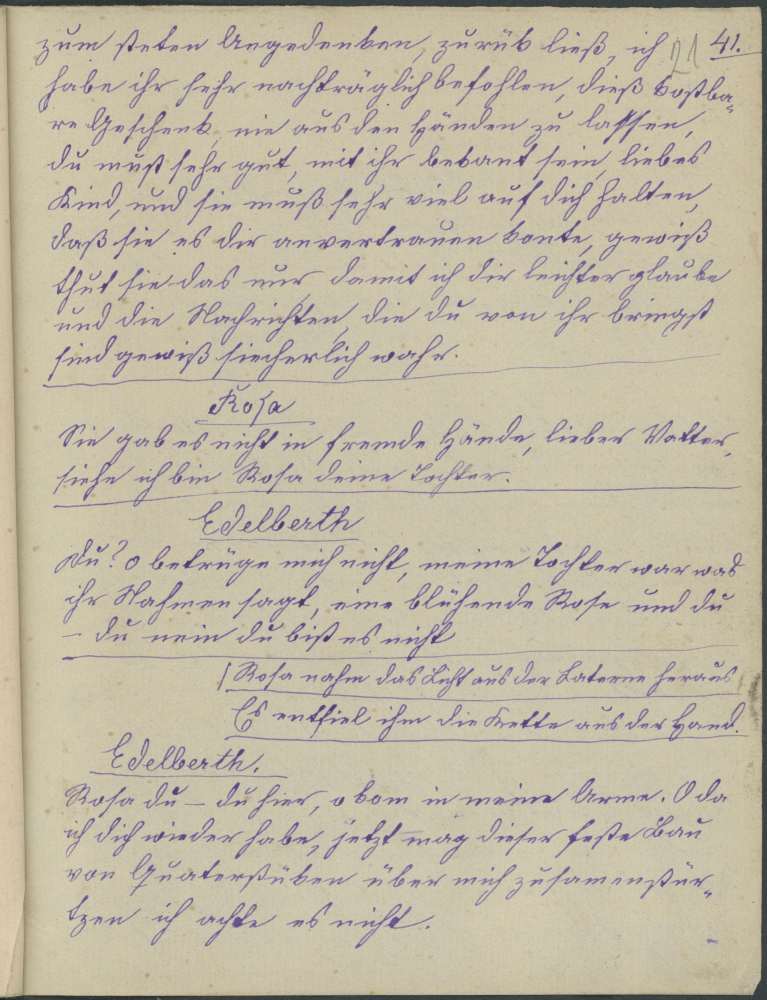 zum steten Angedenken, zurük ließ, ich 21 41.
habe ihr sehr nachträglich befohlen, dieß kostba„
re Geschenk, nie aus den Händen zu lassen,
du must sehr gut, mit ihr bekant sein, liebes
Kind, und sie muß sehr viel auf dich halten,
daß sie es dir anvertrauen konte, gewiß
thut sie das nur, damit ich dir leichter glaube
und die Nachrichten, die du von ihr bringst
sind gewiß siecherlich wahr.
Rosa
Sie gab es nicht in fremde Hände, lieber Vatter,
siehe ich bin Rosa deine Tochter.
Edelberth
Du? o betrüge mich nicht, meine Tochter war was
ihr Nahmen sagt, eine blühende Rose und du
– du nein du bist es nicht
/ Rosa nahm das Licht aus der Laterne heraus
Es entfiel ihm die Kette aus der Hand.
Edelberth.
Rosa du – du hier, o kom in meine Arme. O da
ich dich wieder habe, jetzt mag dieser feste Bau
von Quaterstüken über mich zusamenstür„
tzen ich achte es nicht.